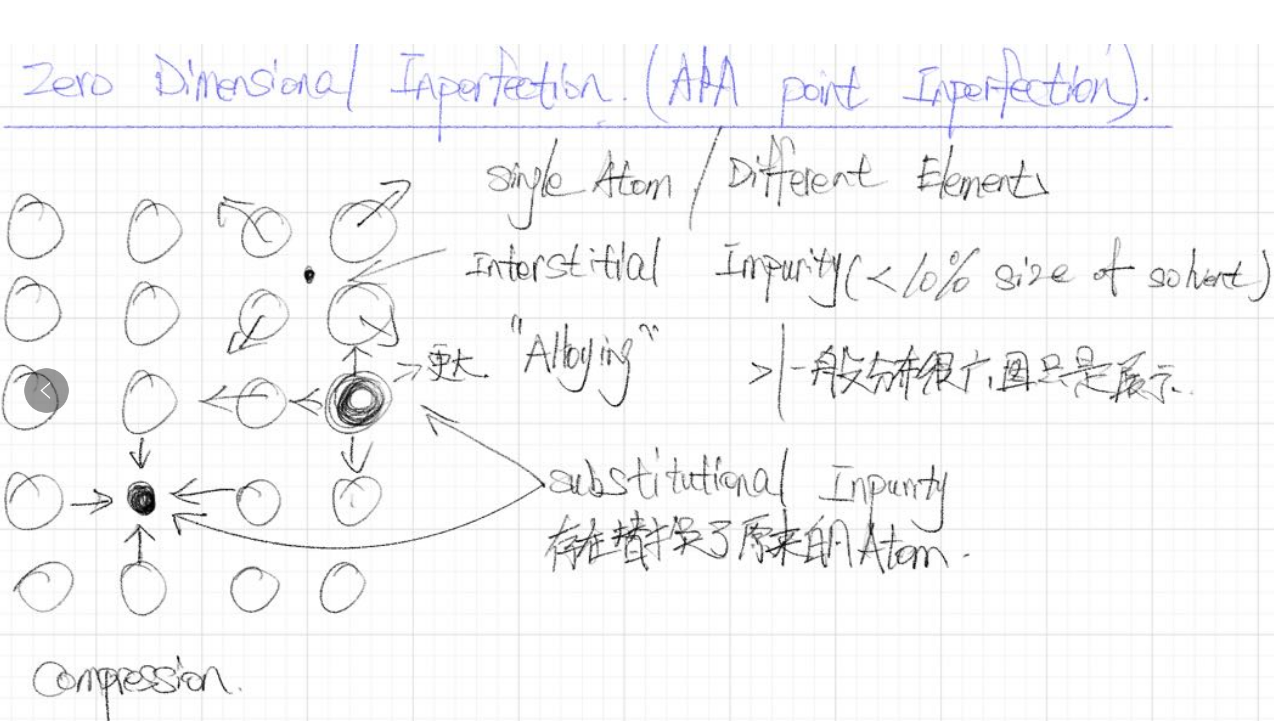 Zero Dimensional Inperfection. (AKA point Inperfection).
single Atom / Different Elements
Interstitial Impurity (<10% size of solvent)
"Alloying"
更大
一般分布很广,图只是展示.
substitutional Inpurity
存在替换了原来的 Atom.
Compression.